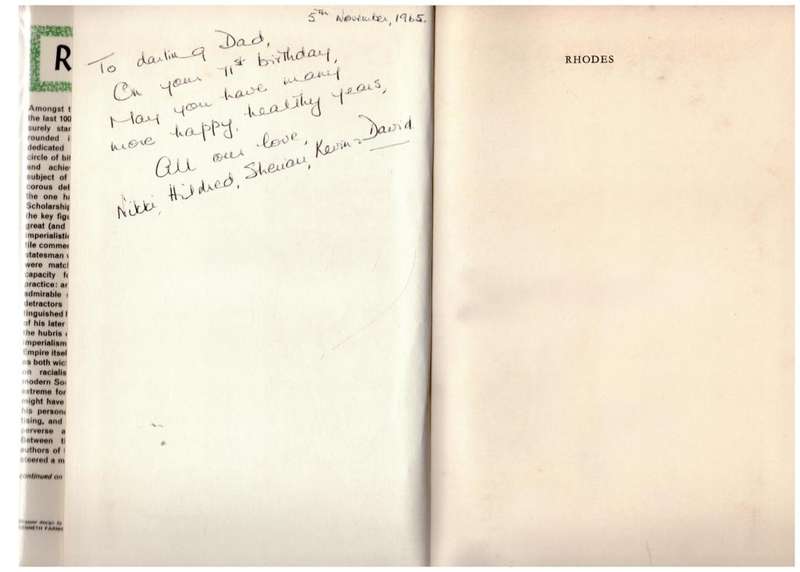 R
Amongst t
the last 100
surely star
rounded i
dedicated
circle of bi
and achie
subject of
corous del
the one h
Scholarship
the key figu
great (and
imperialisti
tile commer
statesman
were match
capacity fo
practice: ar
admirable
detractors
tinguished l
of his later
the hubris
imperialism
Empire itsel
as both wic
on racialis
modern So
extreme for
might have
his persona
ising, and
perverse a
Between t
authors of
steered a m
continued on
KENNETH FARNH
5th November, 1965.
To darling Dad,
On your 71st birthday,
May you have many
more happy, healthy years,
All our love,
Nikki, Hildred, Kevin & David
RHODES